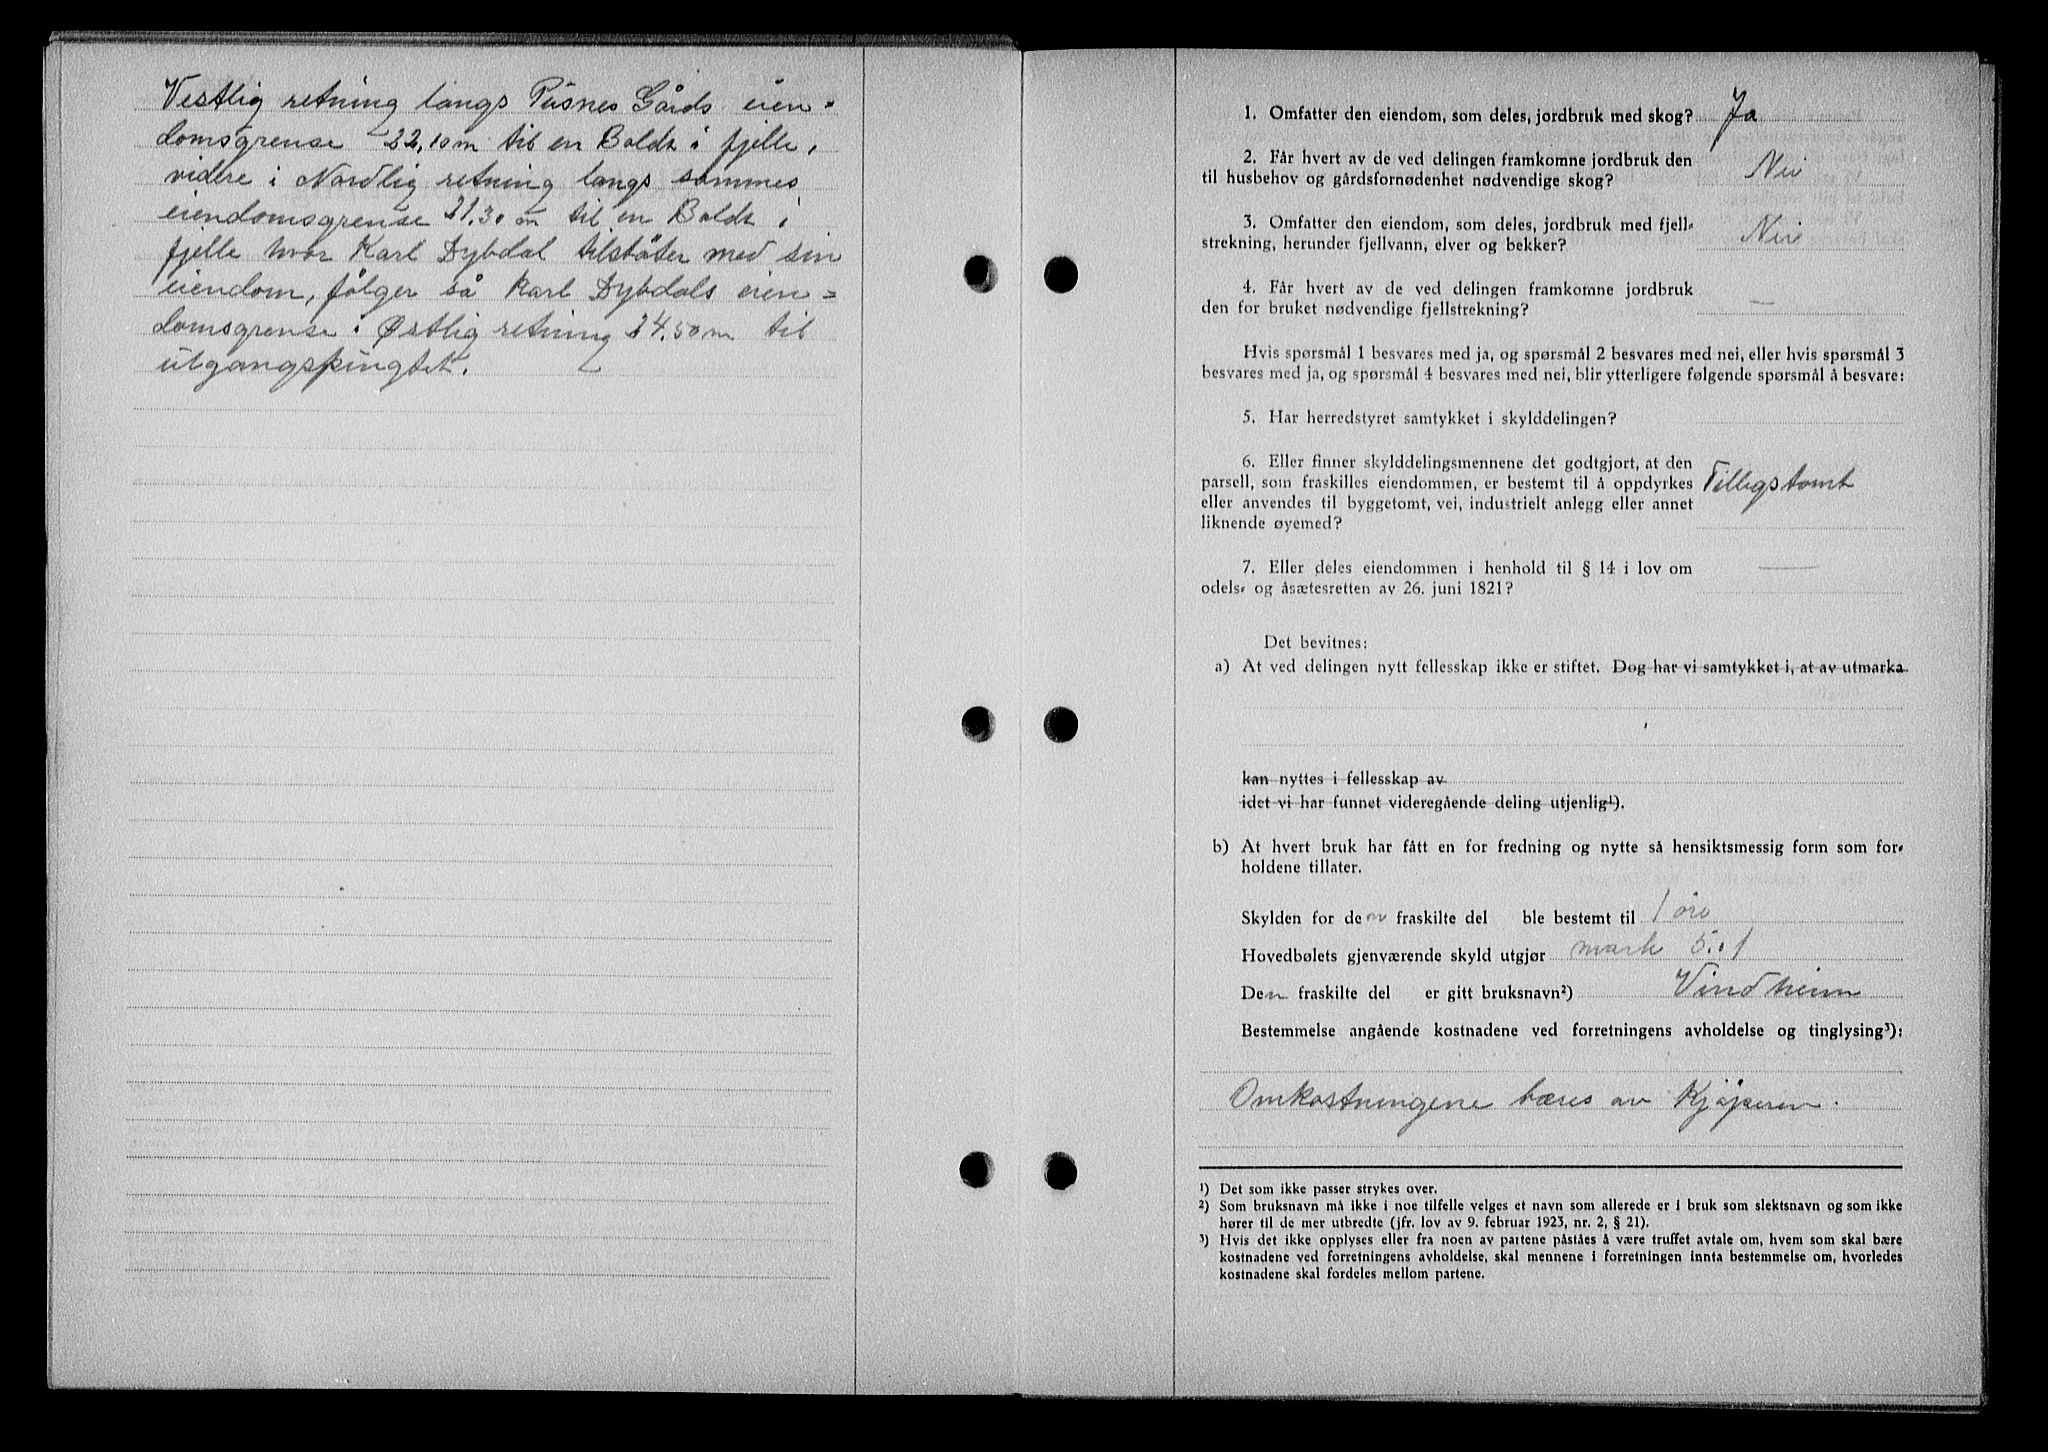 Vestlig retning langs Pusnes Gårds eien-
domsgrense 22,10 m til en Boldt i fjelle,
videre i Nordlig retning langs sammes
eiendomsgrense 21.30 m til en Boldt i
fjelle hvor Karl Dybdal tilstøter med sin
eiendom, følger så Karl Dybdals eien=
domsgrense i Østlig retning 24,50 m til
utgangspungtet.
1. Omfatter den eiendom, som deles, jordbruk med skog? Ja
2. Får hvert av de ved delingen framkomne jordbruk den
til husbehov og gårdsfornødenhet nødvendige skog? Nei
3. Omfatter den eiendom, som deles, jordbruk med fjell-
strekning, herunder fjellvann, elver og bekker? Nei
4. Får hvert av de ved delingen framkomne jordbruk
den for bruket nødvendige fjellstrekning? —
Hvis spørsmål 1 besvares med ja, og spørsmål 2 besvares med nei, eller hvis spørsmål 3
besvares med ja, og spørsmål 4 besvares med nei, blir ytterligere følgende spørsmål å besvare:
5. Har herredstyret samtykket i skylddelingen?
6. Eller finner skylddelingsmennene det godtgjort, at den
parsell, som fraskilles eiendommen, er bestemt til å oppdyrkes Tilligstomt
eller anvendes til byggetomt, vei, industrielt anlegg eller annet
liknende øyemed?
7. Eller deles eiendommen i henhold til § 14 i lov om —
odels- og åsætesretten av 26. juni 1821?
Det bevitnes:
a) At ved delingen nytt fellesskap ikke er stiftet. Dog har vi samtykket i, at av utmarka
kan nyttes i fellesskap av
idet vi har funnet videregående deling utjenlig¹).
b) At hvert bruk har fått en for fredning og nytte så hensiktsmessig form som for-
holdene tillater.
Skylden for den fraskilte del ble bestemt til 1 øre
Hovedbølets gjenværende skyld utgjør mark 5.01
Den fraskilte del er gitt bruksnavn²) Vindheim
Bestemmelse angående kostnadene ved forretningens avholdelse og tinglysing³):
Omkostningene bæres av Kjøperen.
¹) Det som ikke passer strykes over.
²) Som bruksnavn må ikke i noe tilfelle velges et navn som allerede er i bruk som slektsnavn og som ikke
hører til de mer utbredte (jfr. lov av 9. februar 1923, nr. 2, § 21).
³) Hvis det ikke opplyses eller fra noen av partene påståes å være truffet avtale om, hvem som skal bære
kostnadene ved forretningens avholdelse, skal mennene i forretningen innta bestemmelse om, hvorledes
kostnadene skal fordeles mellom partene.